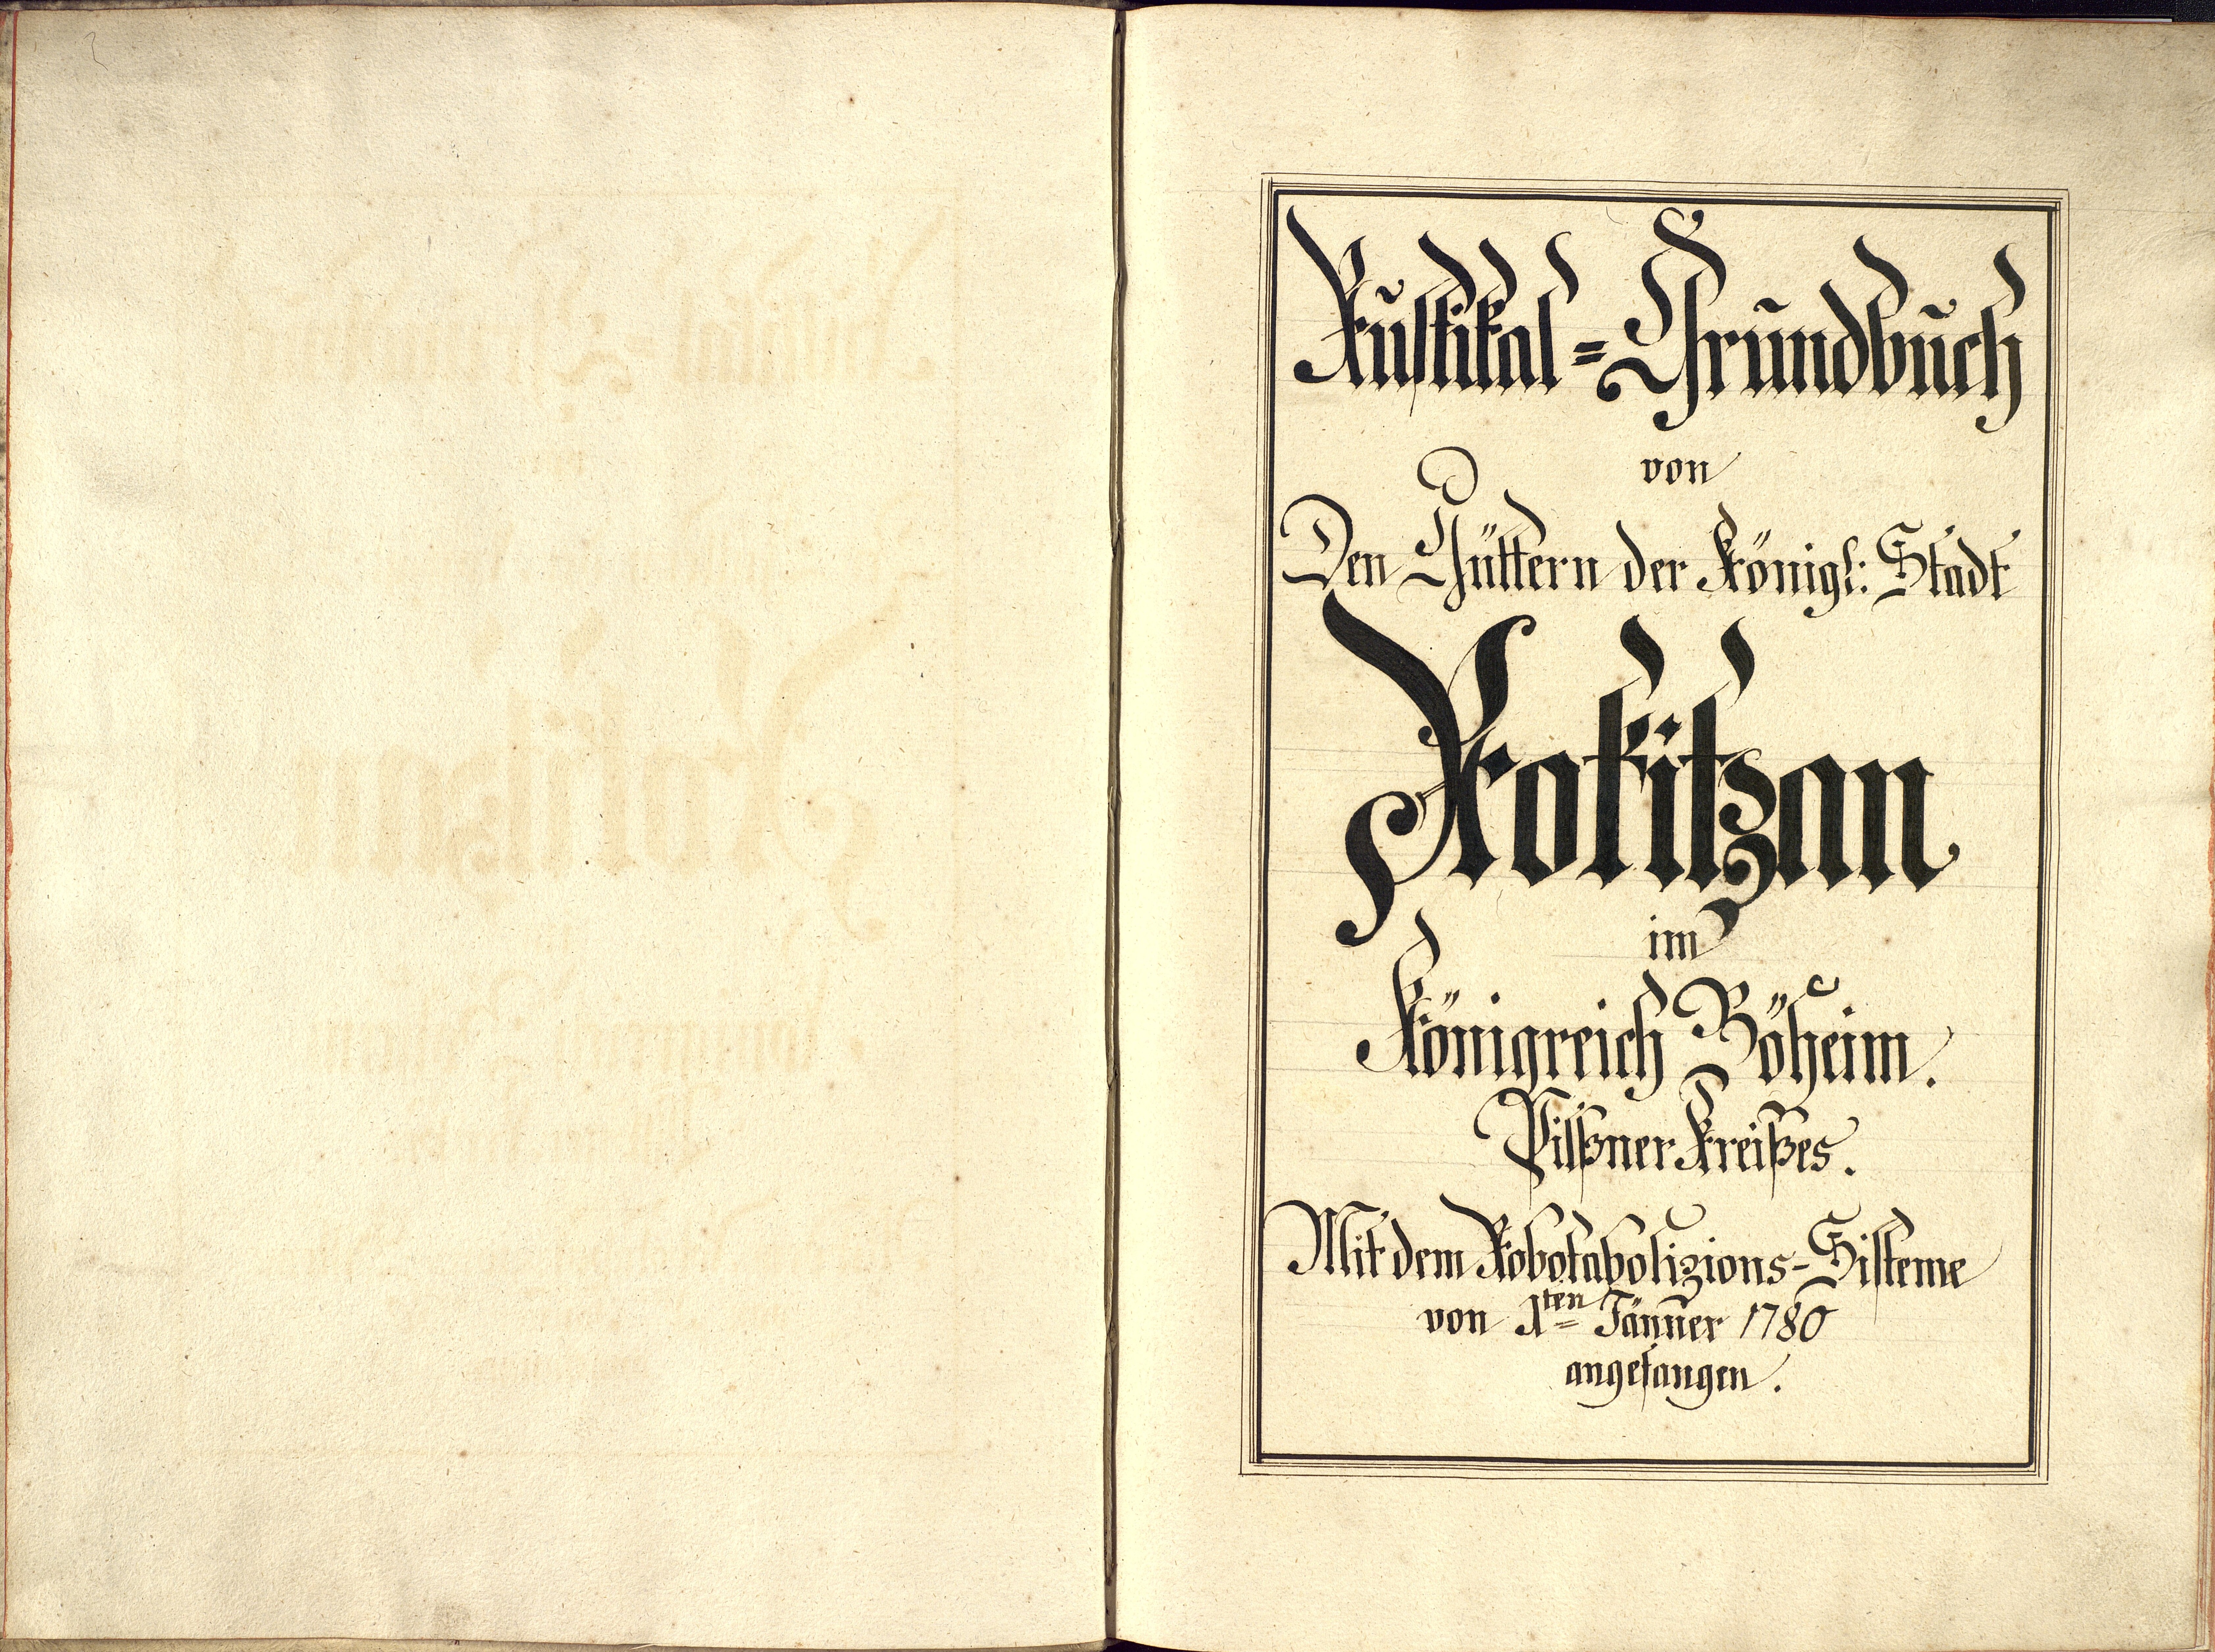 Rustikal=Grundbuch
von
Den Güttern der Königl: Stadt
Rokitzan
im
Königreich Böheim.
Pilßner Kreißes.
Mit dem Robotabolizions-Sisteme
von 1ten Jänner 1780
angefangen.